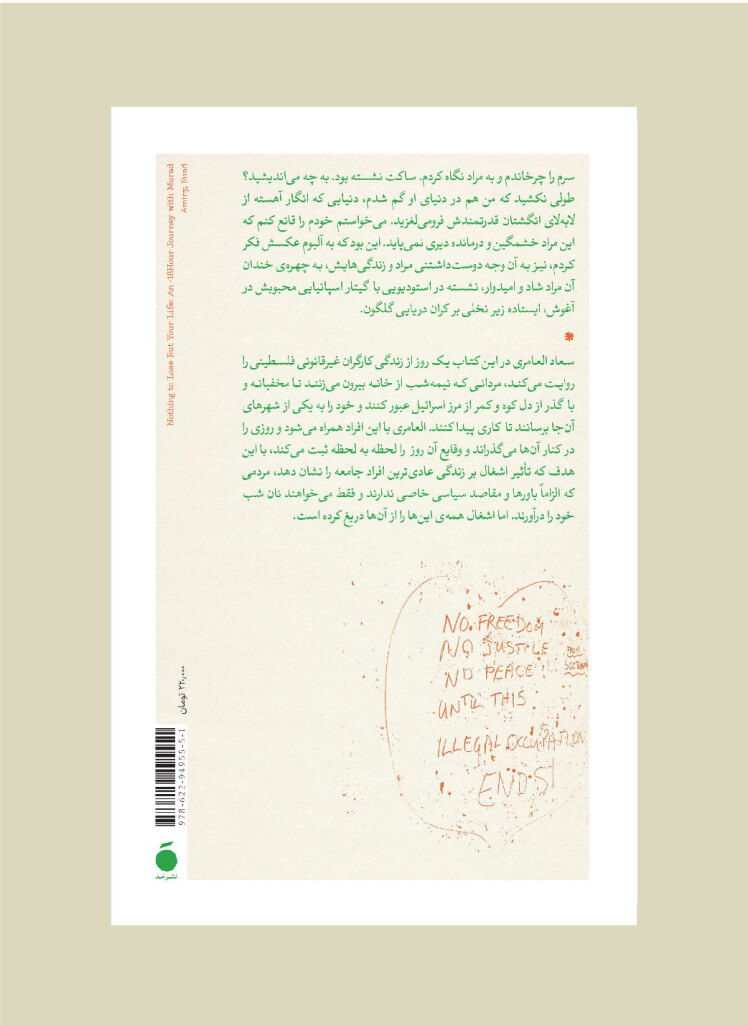 سرم را چرخاندم و به مراد نگاه کردم. ساکت نشسته بود. به چه می‌اندیشید؟
طولی نکشید که من هم در دنیای او گم شدم، دنیایی که انگار آهسته از
لابه‌لای انگشتان قدرتمندش فرومی‌لغزید. می‌خواستم خودم را قانع کنم که
این مراد خشمگین و درمانده دیری نمی‌پاید. این بود که به آلبوم عکسش فکر
کردم، نیز به آن وجه دوست‌داشتنی مراد و زندگی‌هایش، به چهره‌ی خندان
آن مراد شاد و امیدوار، نشسته در استودیویی با گیتار اسپانیایی محبوبش در
آغوش، ایستاده زیر نخلی بر کران دریایی گلگون.
*
سعاد العامری در این کتاب یک روز از زندگی کارگران غیرقانونی فلسطینی را
روایت می‌کند، مردانی که نیمه‌شب از خانه بیرون می‌زنند تا مخفیانه و
با گذر از دل کوه و کمر از مرز اسرائیل عبور کنند و خود را به یکی از شهرهای
آن‌جا برسانند تا کاری پیدا کنند. العامری با این افراد همراه می‌شود و روزی را
در کنار آن‌ها می‌گذراند و وقایع آن روز را لحظه به لحظه ثبت می‌کند، با این
هدف که تأثیر اشغال بر زندگی عادی‌ترین افراد جامعه را نشان دهد، مردمی
که الزاماً باورها و مقاصد سیاسی خاصی ندارند و فقط می‌خواهند نان شب
خود را درآورند. اما اشغال همه‌ی این‌ها را از آن‌ها دریغ کرده است.
Nothing to Lose But Your Life: An -18Hour Journey with Murad
Amiry, Suad
NO FREEDOM
NO JUSTICE
NO PEACE
UNTIL THIS
ILLEGAL OCCUPATION
ENDS!
FROM
۲۲,۰۰۰ تومان
978-622-94955-5-1
نشر مد